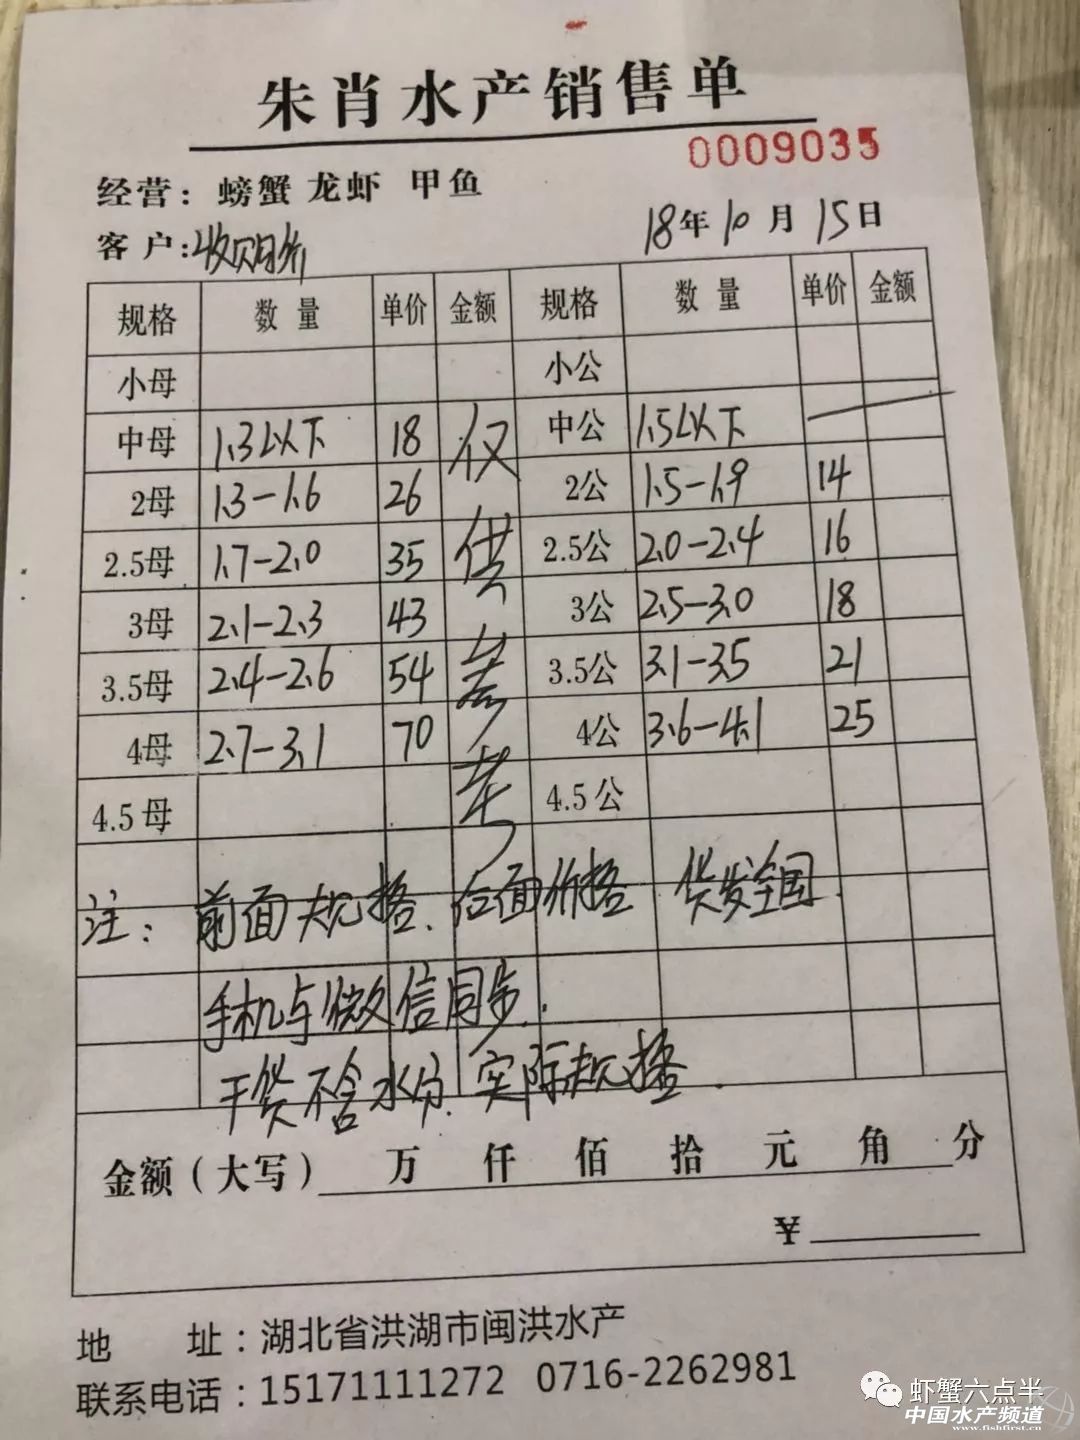 朱肖水产销售单
0009035
经营：螃蟹 龙虾 甲鱼
客户：收购价 18年10月15日
规格 数量 单价 金额 规格 数量 单价 金额
小母 小公
中母 1.3以下 18 仅 中公 1.5以下 —
2母 1.3-1.6 26 2公 1.5-1.9 14
2.5母 1.7-2.0 35 供 2.5公 2.0-2.4 16
3母 2.1-2.3 43 3公 2.5-3.0 18
3.5母 2.4-2.6 54 参 3.5公 3.1-3.5 21
4母 2.7-3.1 70 4公 3.6-4.1 25
4.5母 考 4.5公
注：前面规格、后面价格 货发全国.
手机与微信同步.
干货不含水份.实际规格.
金额（大写） 万 仟 佰 拾 元 角 分
¥
地 址：湖北省洪湖市闽洪水产
联系电话：15171111272 0716-2262981
虾蟹六点半
中国水产频道
www.fishfirst.cn